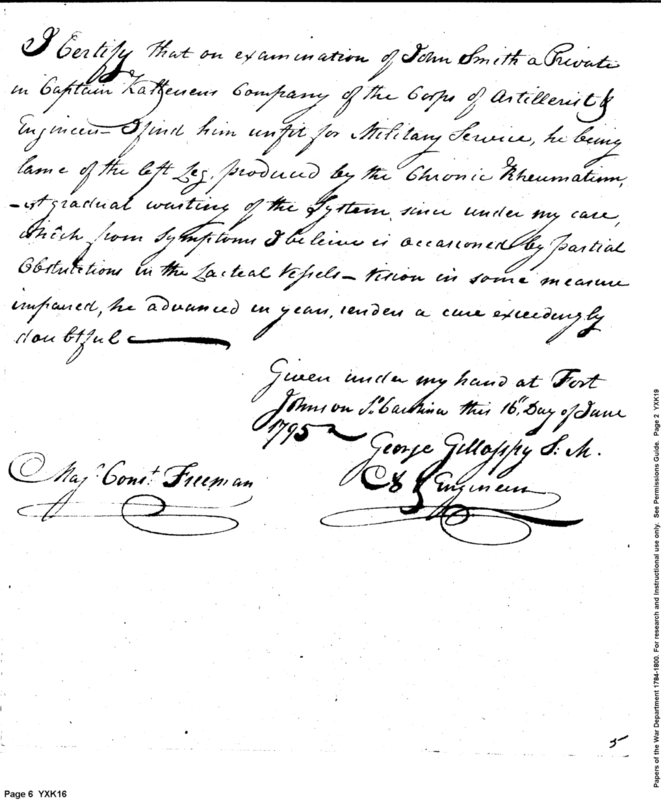 I Certify that on examination of John Smith a Private
in Captain Kalteisens Company of the Corps of Artillerist &
Engineers — I find him unfit for Military Service, he being
lame of the left Leg, produced by the Chronic Rheumatism,
— A gradual wasting of the System, since under my care,
which from Symptoms I believe is occasioned by partial
Obstructions in the Lacteal Vessels — Vision in some measure
impaired, he advanced in years, renders a cure exceedingly
doubtful
Given under my hand at Fort
Johnson So. Carolina this 16th Day of June
1795
George Gillaspy S. M.
& Engineers
Majr Const. Freeman
5
Page 6 YXK16
Papers of the War Department 1784-1800. For research and instructional use only. See Permissions Guide. Page 2 YXK19